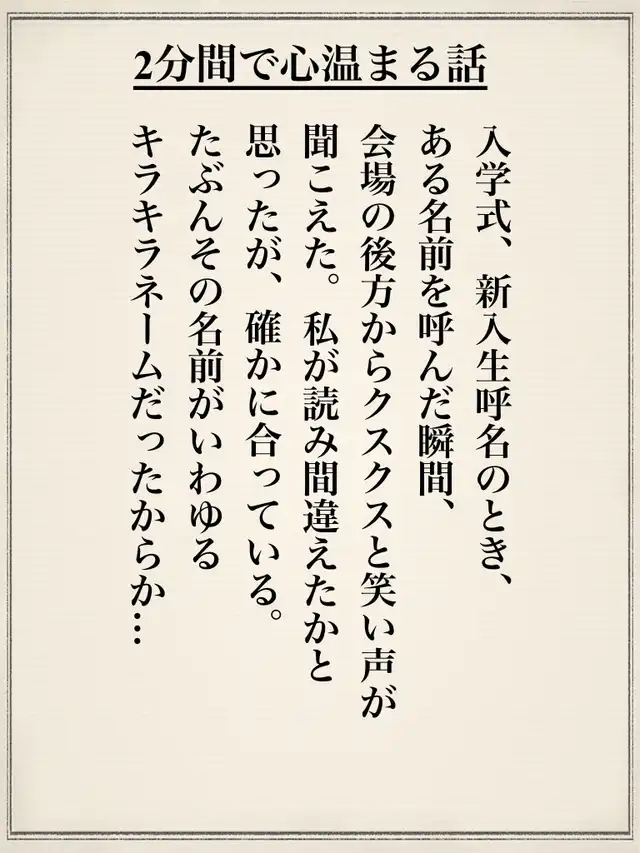 2分間で心温まる話
入学式、新入生呼名のとき、
ある名前を呼んだ瞬間、
会場の後方からクスクスと笑い声が
聞こえた。私が読み間違えたかと
思ったが、確かに合っている。
たぶんその名前がいわゆる
キラキラネームだったからか…